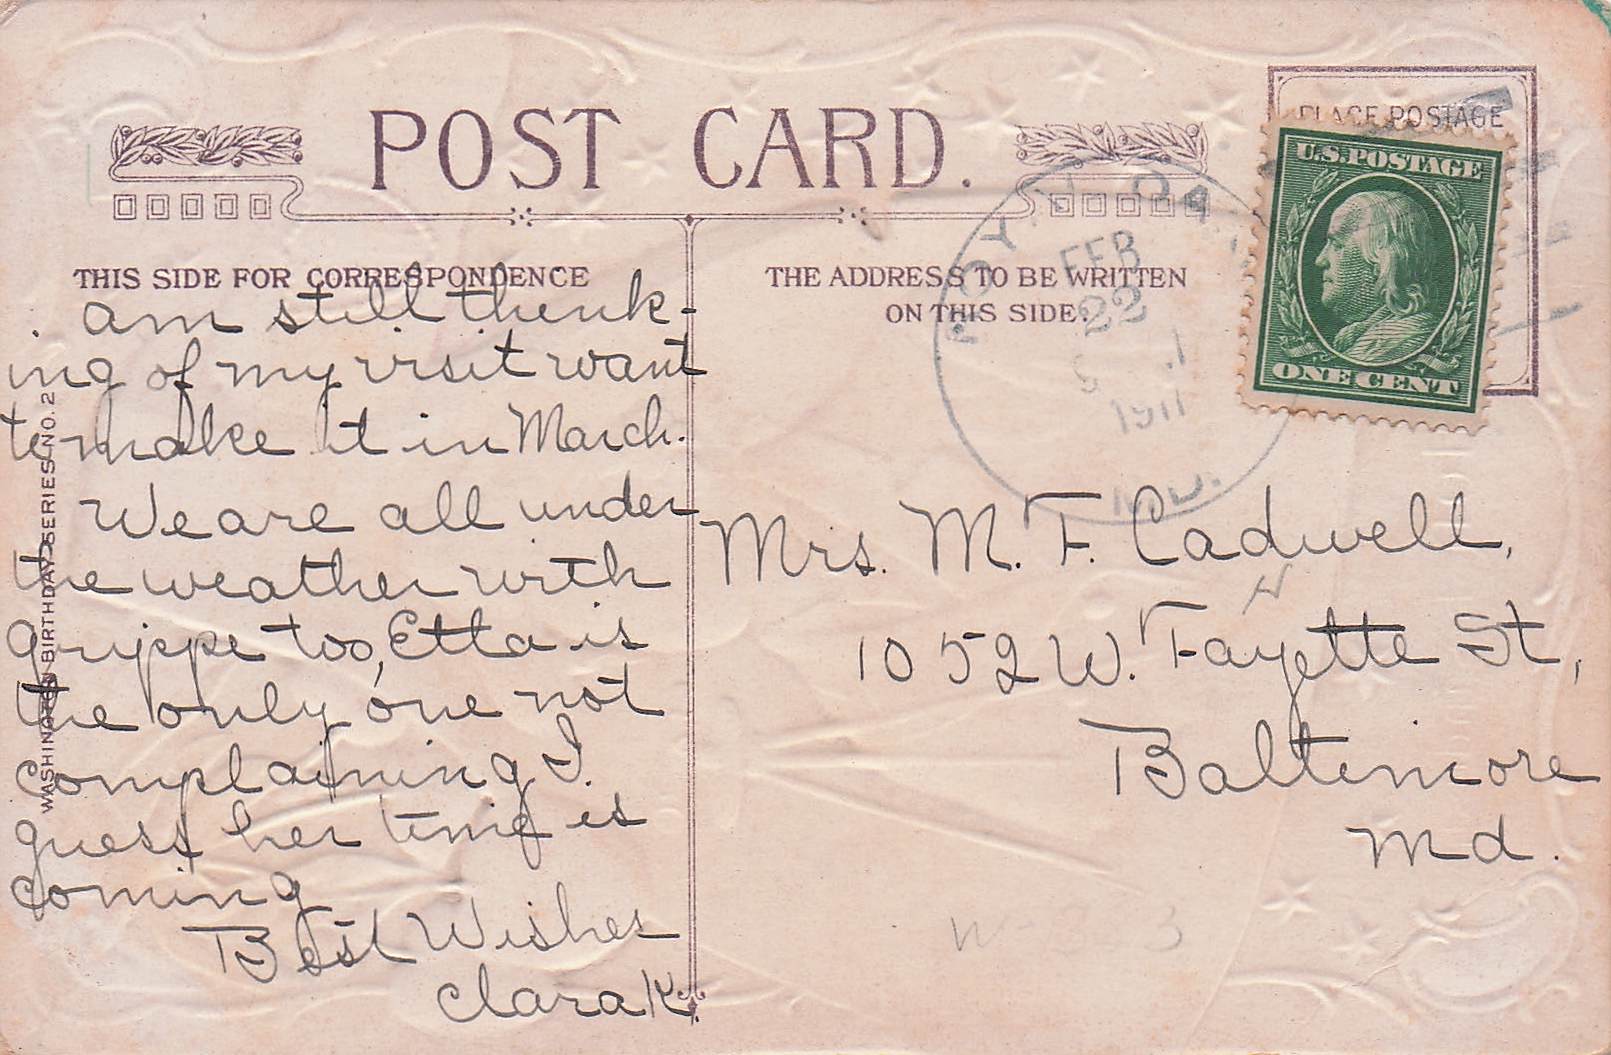 POST CARD.
PLACE POSTAGE
U.S. POSTAGE
ONE CENT
THIS SIDE FOR CORRESPONDENCE
THE ADDRESS TO BE WRITTEN
ON THIS SIDE.
FEB
22
1911
MD.
am still think-
ing of my visit want
to make it in March.
We are all under
the weather with
grippe too, Etta is
the only one not
complaining I.
guess her time is
coming
Best Wishes
Clara K.
Mrs. M. F. Cadwell,
1052 W. Fayette St,
Baltimore
Md.
WASHINGTON BIRTHDAY SERIES NO. 2